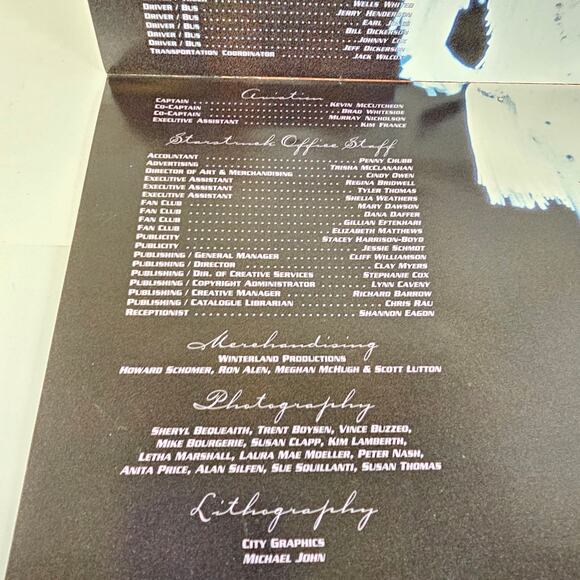 Wells
Driver / Bus Jerry Henderson
Driver / Bus Earl
Driver / Bus Bill Dickerson
Driver / Bus Johnny
Driver / Bus Jeff Dickerson
Transportation Coordinator Jack Wilcox
Aviation
Captain Kevin McCutcheon
Co-Captain Brad Whiteside
Co-Captain Murray Nicholson
Executive Assistant Kim France
Starstruck Office Staff
Accountant Penny Chubb
Advertising Trisha McClanahan
Director of Art & Merchandising Cindy Owen
Executive Assistant Regina Bridwell
Executive Assistant Tyler Thomas
Executive Assistant Shelia Weathers
Fan Club Mary Dawson
Fan Club Dana Daffer
Fan Club Gillian Eftekhari
Fan Club Elizabeth Matthews
Publicity Stacey Harrison-Boyd
Publicity Jessie Schmidt
Publishing / General Manager Cliff Williamson
Publishing / Director Clay Myers
Publishing / Dir. of Creative Services Stephanie Cox
Publishing / Copyright Administrator Lynn Caveny
Publishing / Creative Manager Richard Barrow
Publishing / Catalogue Librarian Chris Rau
Receptionist Shannon Eagon
Merchandising
Winterland Productions
Howard Schomer, Ron Alen, Meghan McHugh & Scott Lutton
Photography
Sheryl Bequeaith, Trent Boysen, Vince Buzzeo,
Mike Bourgerie, Susan Clapp, Kim Lamberth,
Letha Marshall, Laura Mae Moeller, Peter Nash,
Anita Price, Alan Silfen, Sue Souillanti, Susan Thomas
Lithography
City Graphics
Michael John